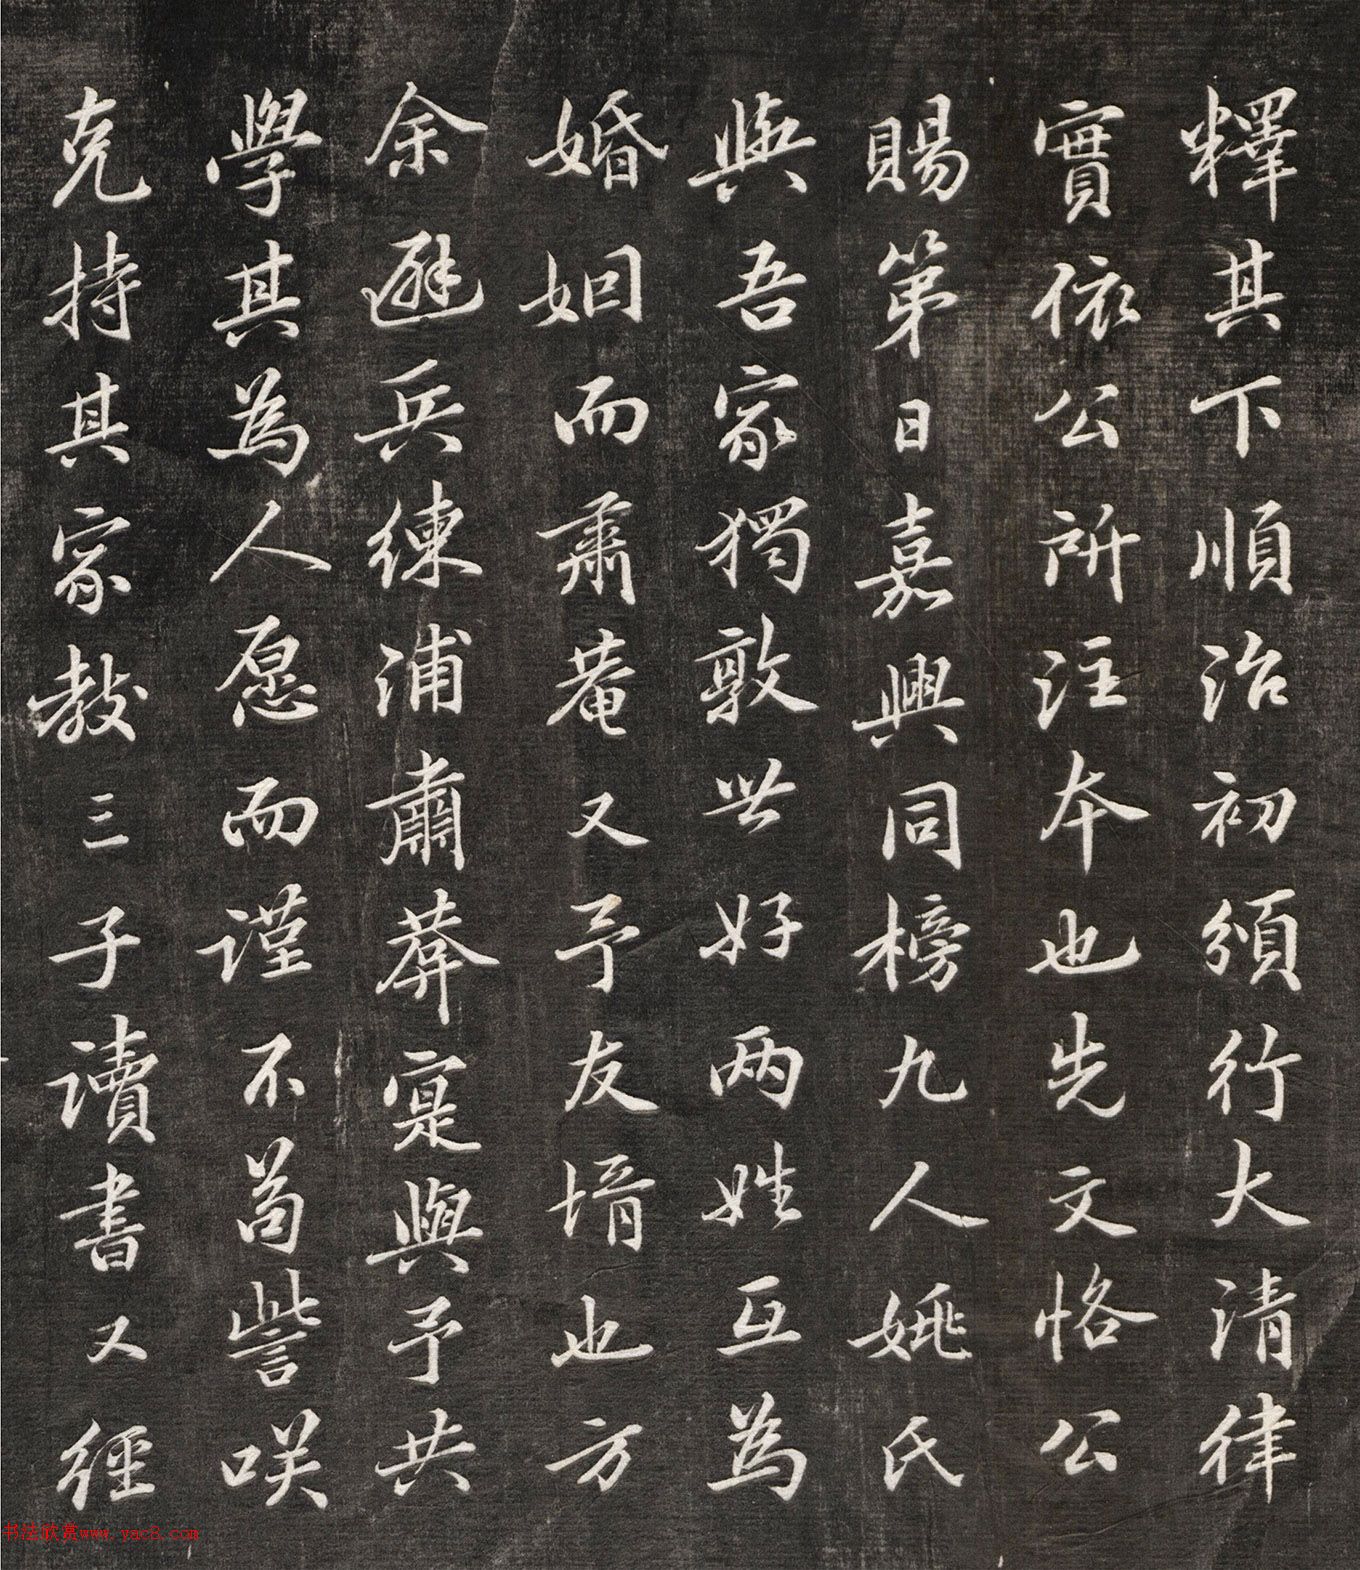 釋其下順治初頒行大清律
實依公所注本也先文恪公
賜第日嘉興同榜九人姚氏
與吾家獨敦世好两姓互為
婚姻而肅菴又予友壻也方
余避兵練浦肅莽寔與予共
學其為人愿而謹不茍訾咲
克持其家教三子讀書又經
书法欣赏www.yac8.com